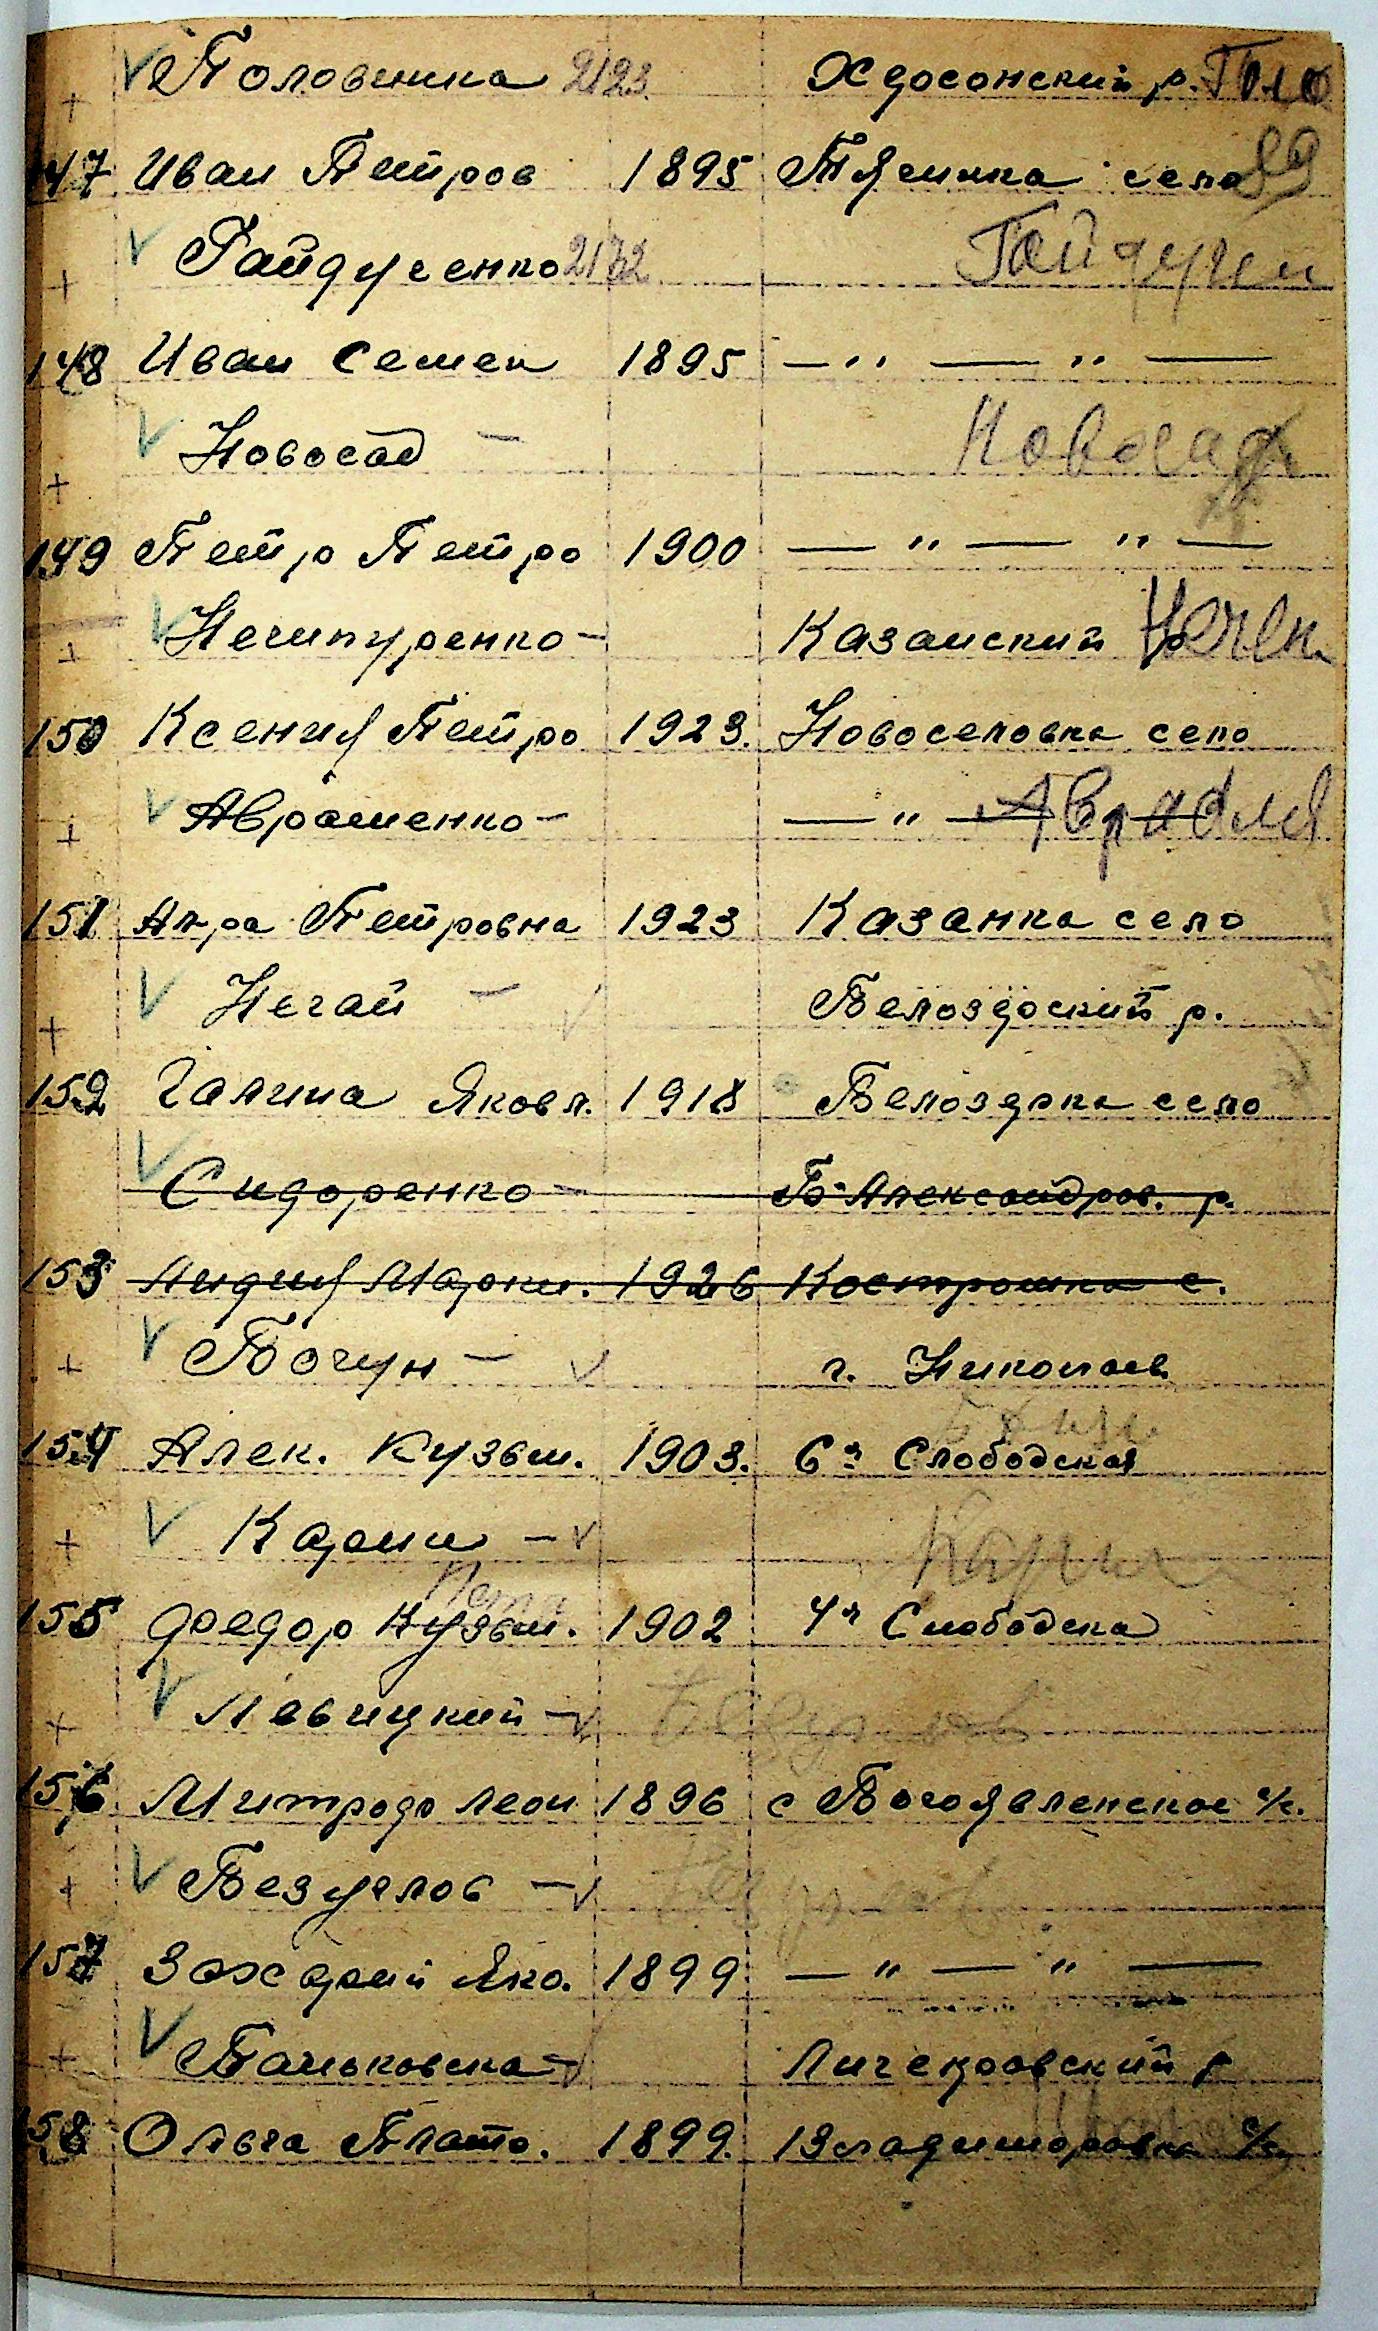 Половинка 2123 Хдосонский р. Поло
147 Иван Петров 1895 Тягинка село 89
Гайдученко 2172 Гайдучен
148 Иван Семен 1895 — " — " —
Новосад — Новосад
149 Петр Петро 1900 — " — " —
Нечипуренко — Казанский р
150 Ксения Петро 1923. Новоселовка село
Аврашенко — — " —
151 Ал-ра Петровна 1923 Казанка село
Нечай — Белоздоский р.
152 Галина Яковл. 1918 Белоздрка село
Сидоренко — Б-Александров. р.
153 Лидия Марки. 1926 Костромка с.
Бочун — г. Николаев
154 Алек. Кузьм. 1903. 6я Слободская
Карпи —
155 Федор Кузьм. 1902 4я Слободска
Левицкий —
156 Митродо Леон 1896 с Богоявленское с/с.
Безуглов —
157 Захарий Яко. 1899. — " — " —
Паньковска — р
158 Ольга Плато. 1899. Владимировка с/с